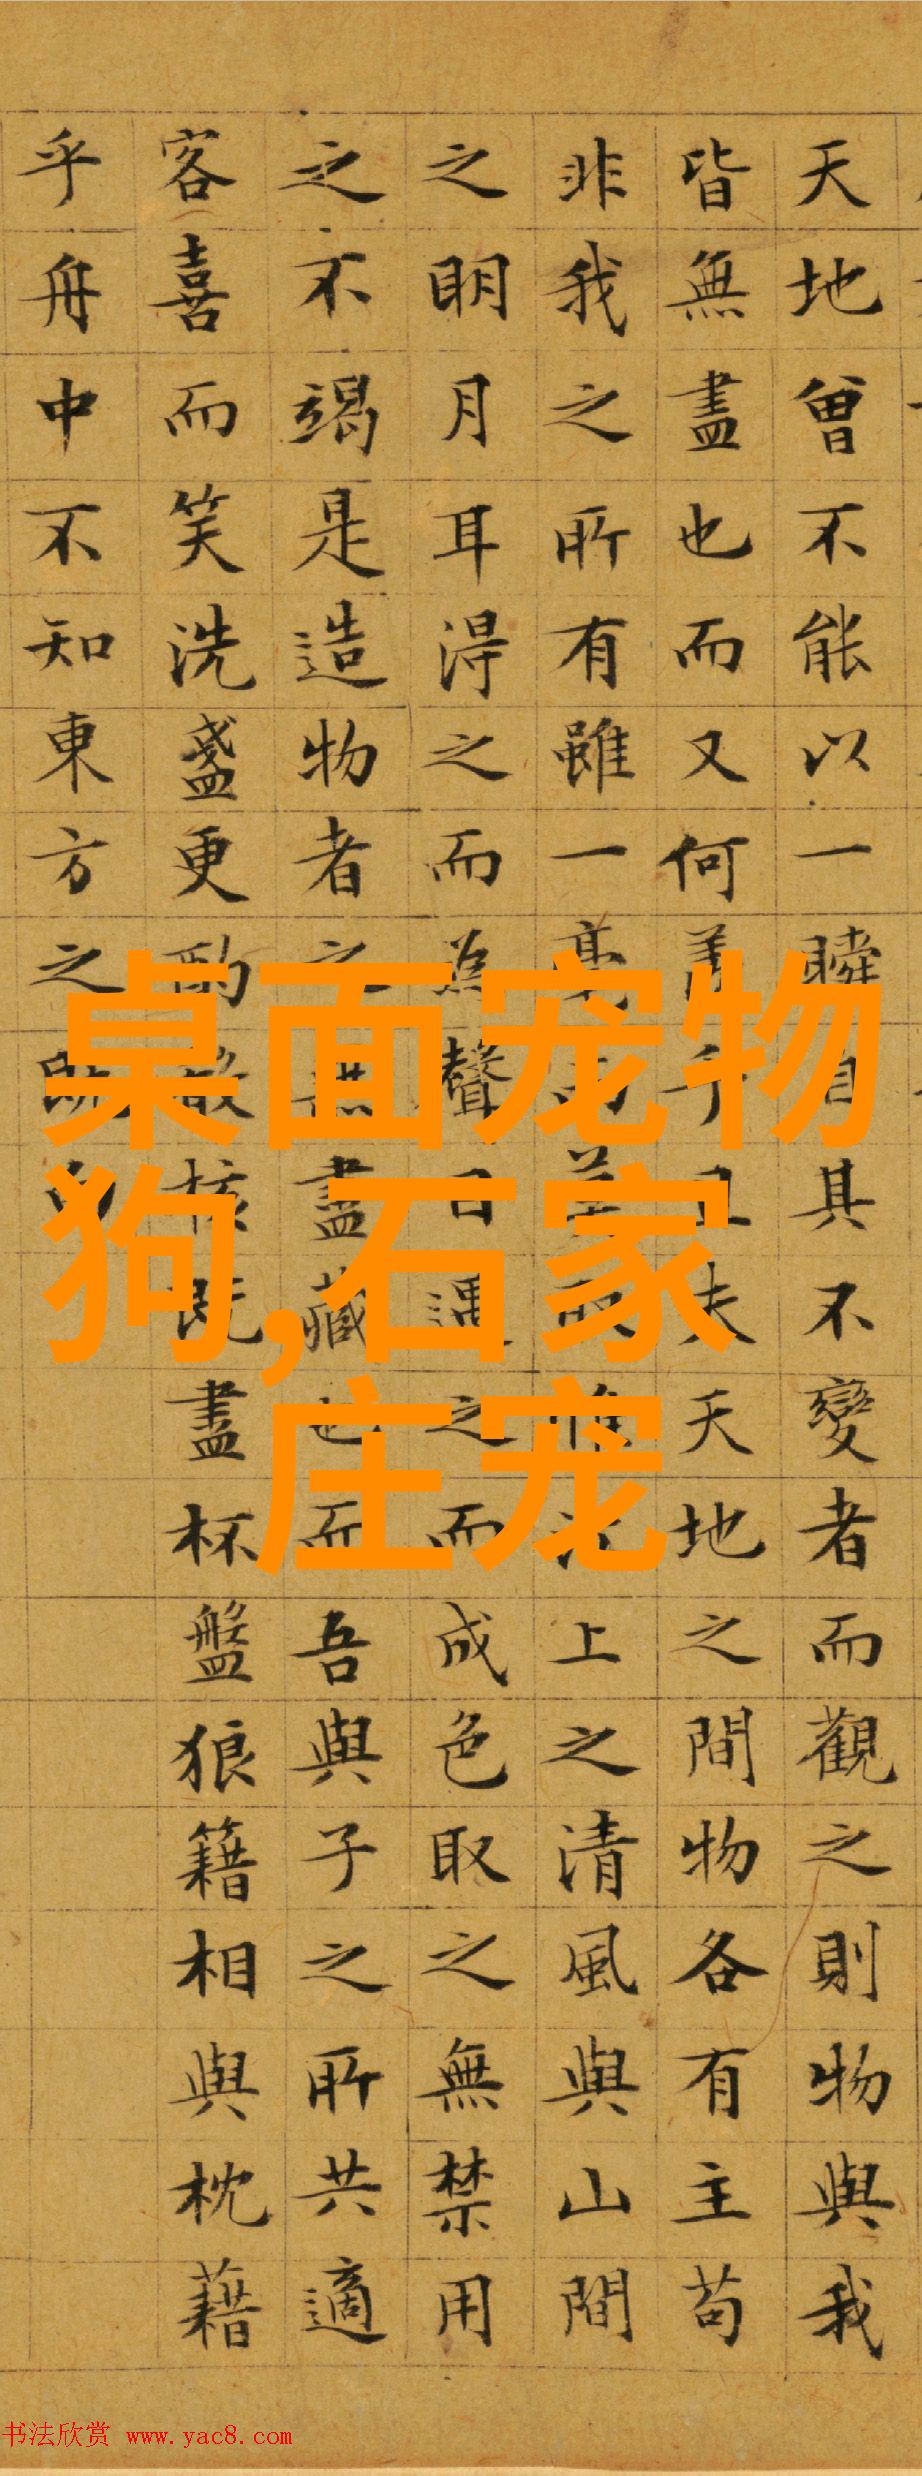 天地曾不能以一瞬自其不變者而觀之則物與我
皆無盡也而又何羨乎且夫天地之間物各有主苟
非我之所有雖一毫而莫取惟江上之清風與山間
之明月耳得之而為聲目遇之而成色取之無禁用
之不竭是造物者之無盡藏也而吾與子之所共適
客喜而笑洗盞更酌核既盡杯盤狼籍相與枕藉
乎舟中不知東方之既白
桌面宠物
狗,石家
庄宠
书法欣赏 www.yac8.com